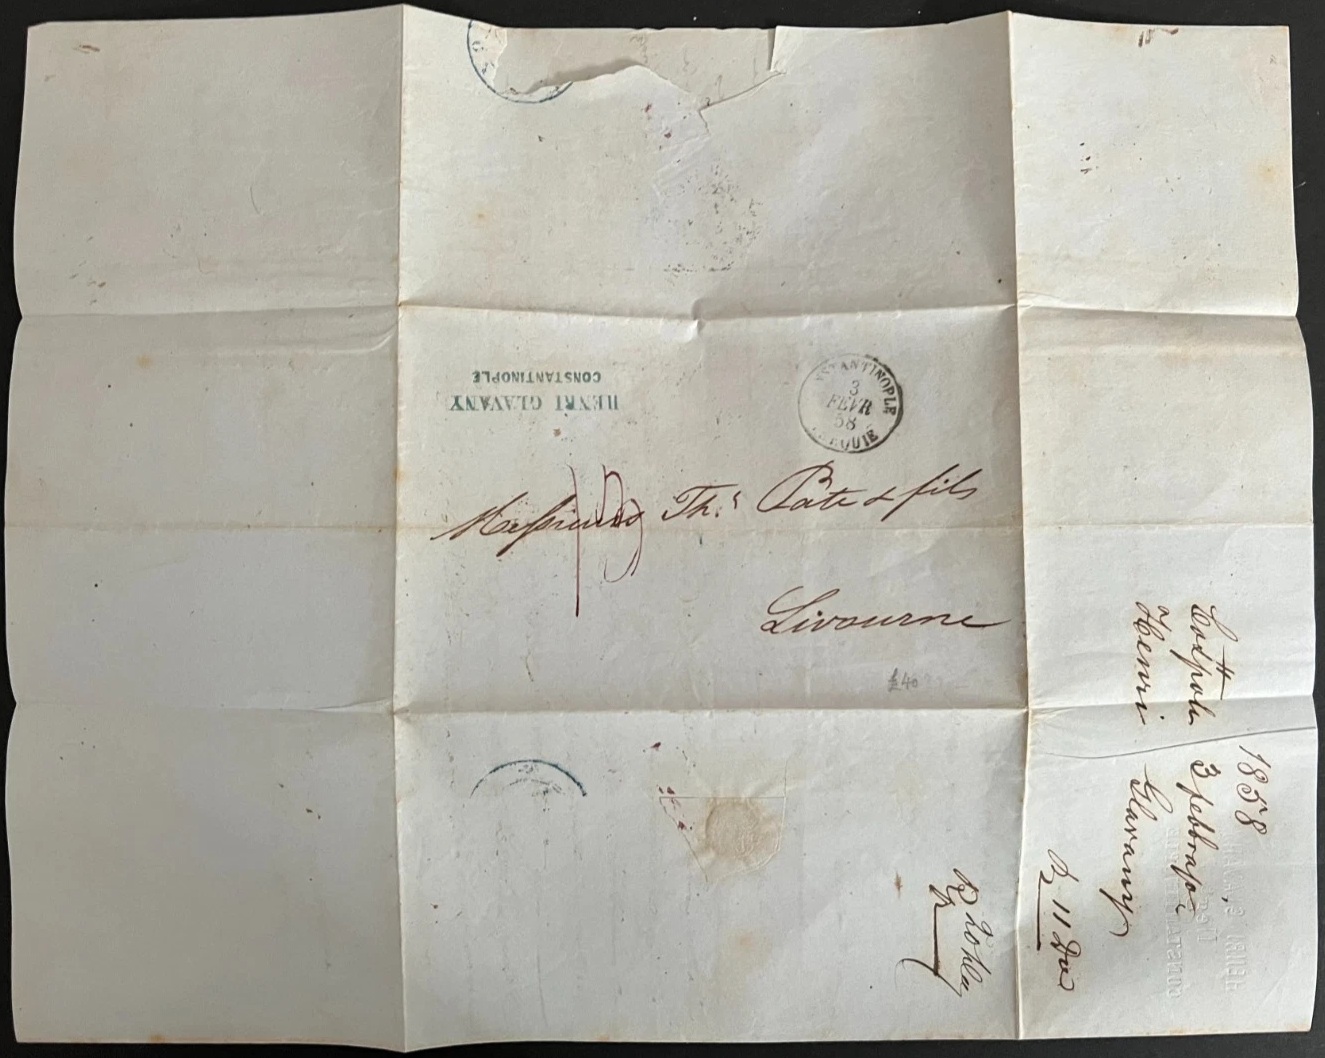 HENRI GLAVANY
CONSTANTINOPLE
CONSTANTINOPLE
3
FEVR
58
TURQUIE
Messieurs Th.s Pate & fils
Livourne
£40
1858
Costpoli 3 febbrajo
Henri Glavany
R 11 Do
R
HENRI GLAVANY
CONSTANTINOPLE